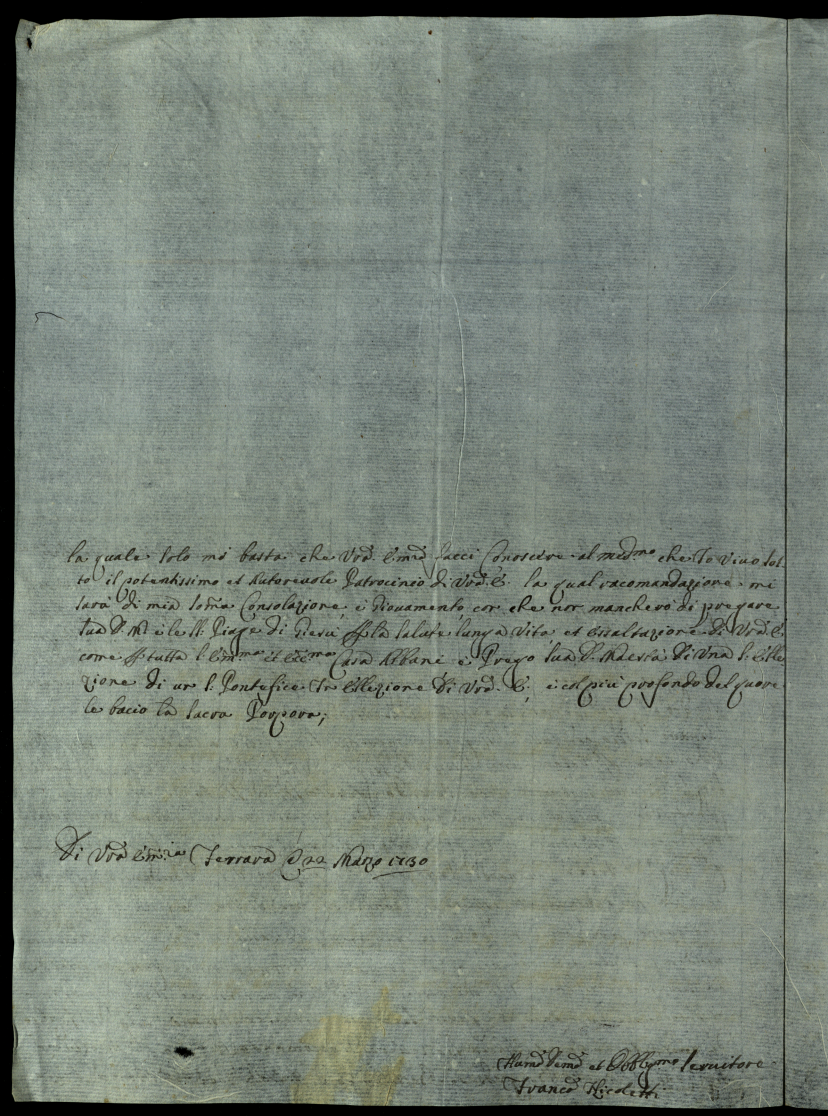 la quale solo mi basta che Vrã. Emã facci Conoscere al medmo che Io vivo sot
to il potentissimo et Autorevole Patrocinio di Vrã. E. la qual racomandazione mi
sarà di mia som̃a Consolazione, e Giovamento, cor che non mancherò di pregare
sua D. M. e le SS. Piage di Giesù per la salute lunga Vita et essaltazione di Vrã. E.
come per tutta l'Emma et Ecc.ma Casa Albani e Prego sua D. Maestà di una S. Elle
zione di un S. Pontefice In Ellezione di Vrã. E; e col più profondo del quore
le bacio la sacra Porpora;
Di Vrã Em.za Ferrara li 22 Marzo 1730
et Obblgmo servitore
Francõ Nicoletti